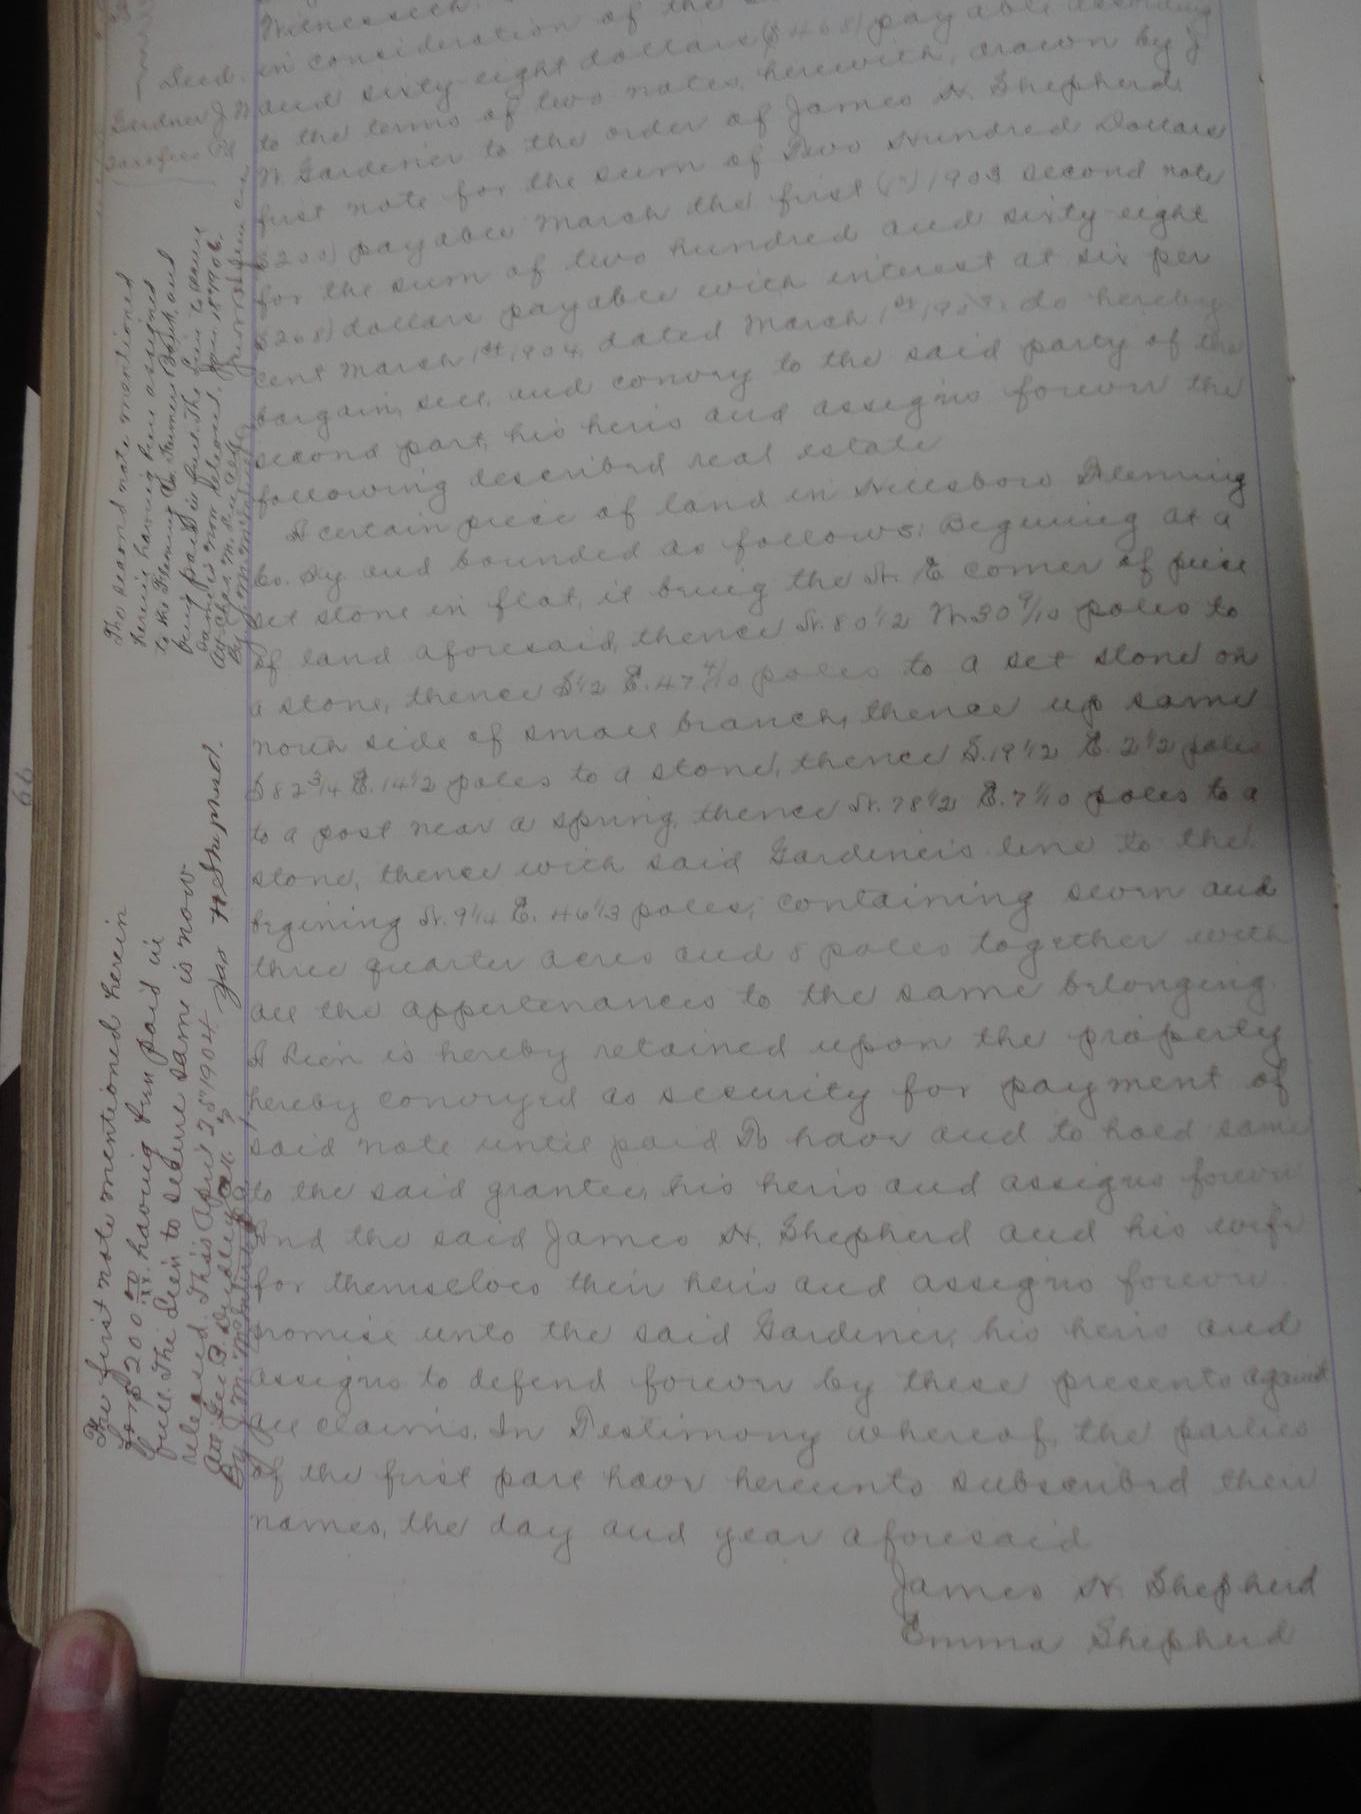 Witnesseth
in consideration of the
and sixty eight dollars ($468) payable according
to the terms of two notes, herewith, drawn by J
N. Gardener to the order of James H. Shepherd
first note for the sum of Two Hundred Dollars
$200) payable March the first (1st) 1903 second note
for the sum of two hundred and sixty eight
$268) dollars payable with interest at six per
cent March 1st 1904, dated March 1st do hereby
bargain, sell, and convey to the said party of the
second part, his heirs and assigns forever the
following described real estate
A certain piece of land in Hillsboro Fleming
Co. Ky and bounded as follows: Begining at a
set stone in flat, it being the N. E corner of piece
of land aforesaid, thence N. 80 1/2 W 30 9/10 poles to
a stone, thence S 1/2 E. 47 4/10 poles to a set stone on
north side of small branch, thence up same
S 82 3/4 E. 14 1/2 poles to a stone, thence S. 19 1/2 E. 2 1/2 poles
to a post near a spring, thence N. 78 1/2 E. 7 1/10 poles to a
stone, thence with said Gardener's line to the
begining N. 9 1/4 E. 46 1/3 poles, containing seven and
three quarter acres and 8 poles together with
all the appertenances to the same belonging.
A lien is hereby retained upon the property
hereby conveyed as security for payment of
said note until paid To have and to hold same
to the said grantee, his heirs and assigns forever
And the said James H. Shepherd and his wife
for themselves their heirs and assigns forever
promise unto the said Gardener, his heirs and
assigns to defend forever by these presents against
all claims. In Testimony whereof, the parties
of the first part have hereunto subscribed their
names, the day and year aforesaid
James H. Shepherd
Emma Shepherd
Deed.
Gardner J N
66
The second note mentioned
herein having been assigned
to the Fleming Co. Farmers Bank, and
being paid in full. The lien to secure
same is now released. 1906.
The first note mentioned herein
for $200 00/xx having been paid in
full. The lien to secure same is now
released. This April 25" 1904 Jas H Shepherd.